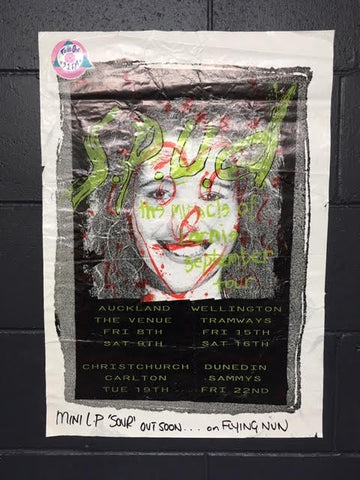 S.P.U.d
of
september
tour
AUCKLAND
THE VENUE
FRI 8TH
SAT 9TH
WELLINGTON
TRAMWAYS
FRI 15TH
SAT 16TH
CHRISTCHURCH
CARLTON
TUE 19TH
DUNEDIN
SAMMYS
FRI 22ND
MINI LP 'SOUR' OUT SOON.... on FLYING NUN